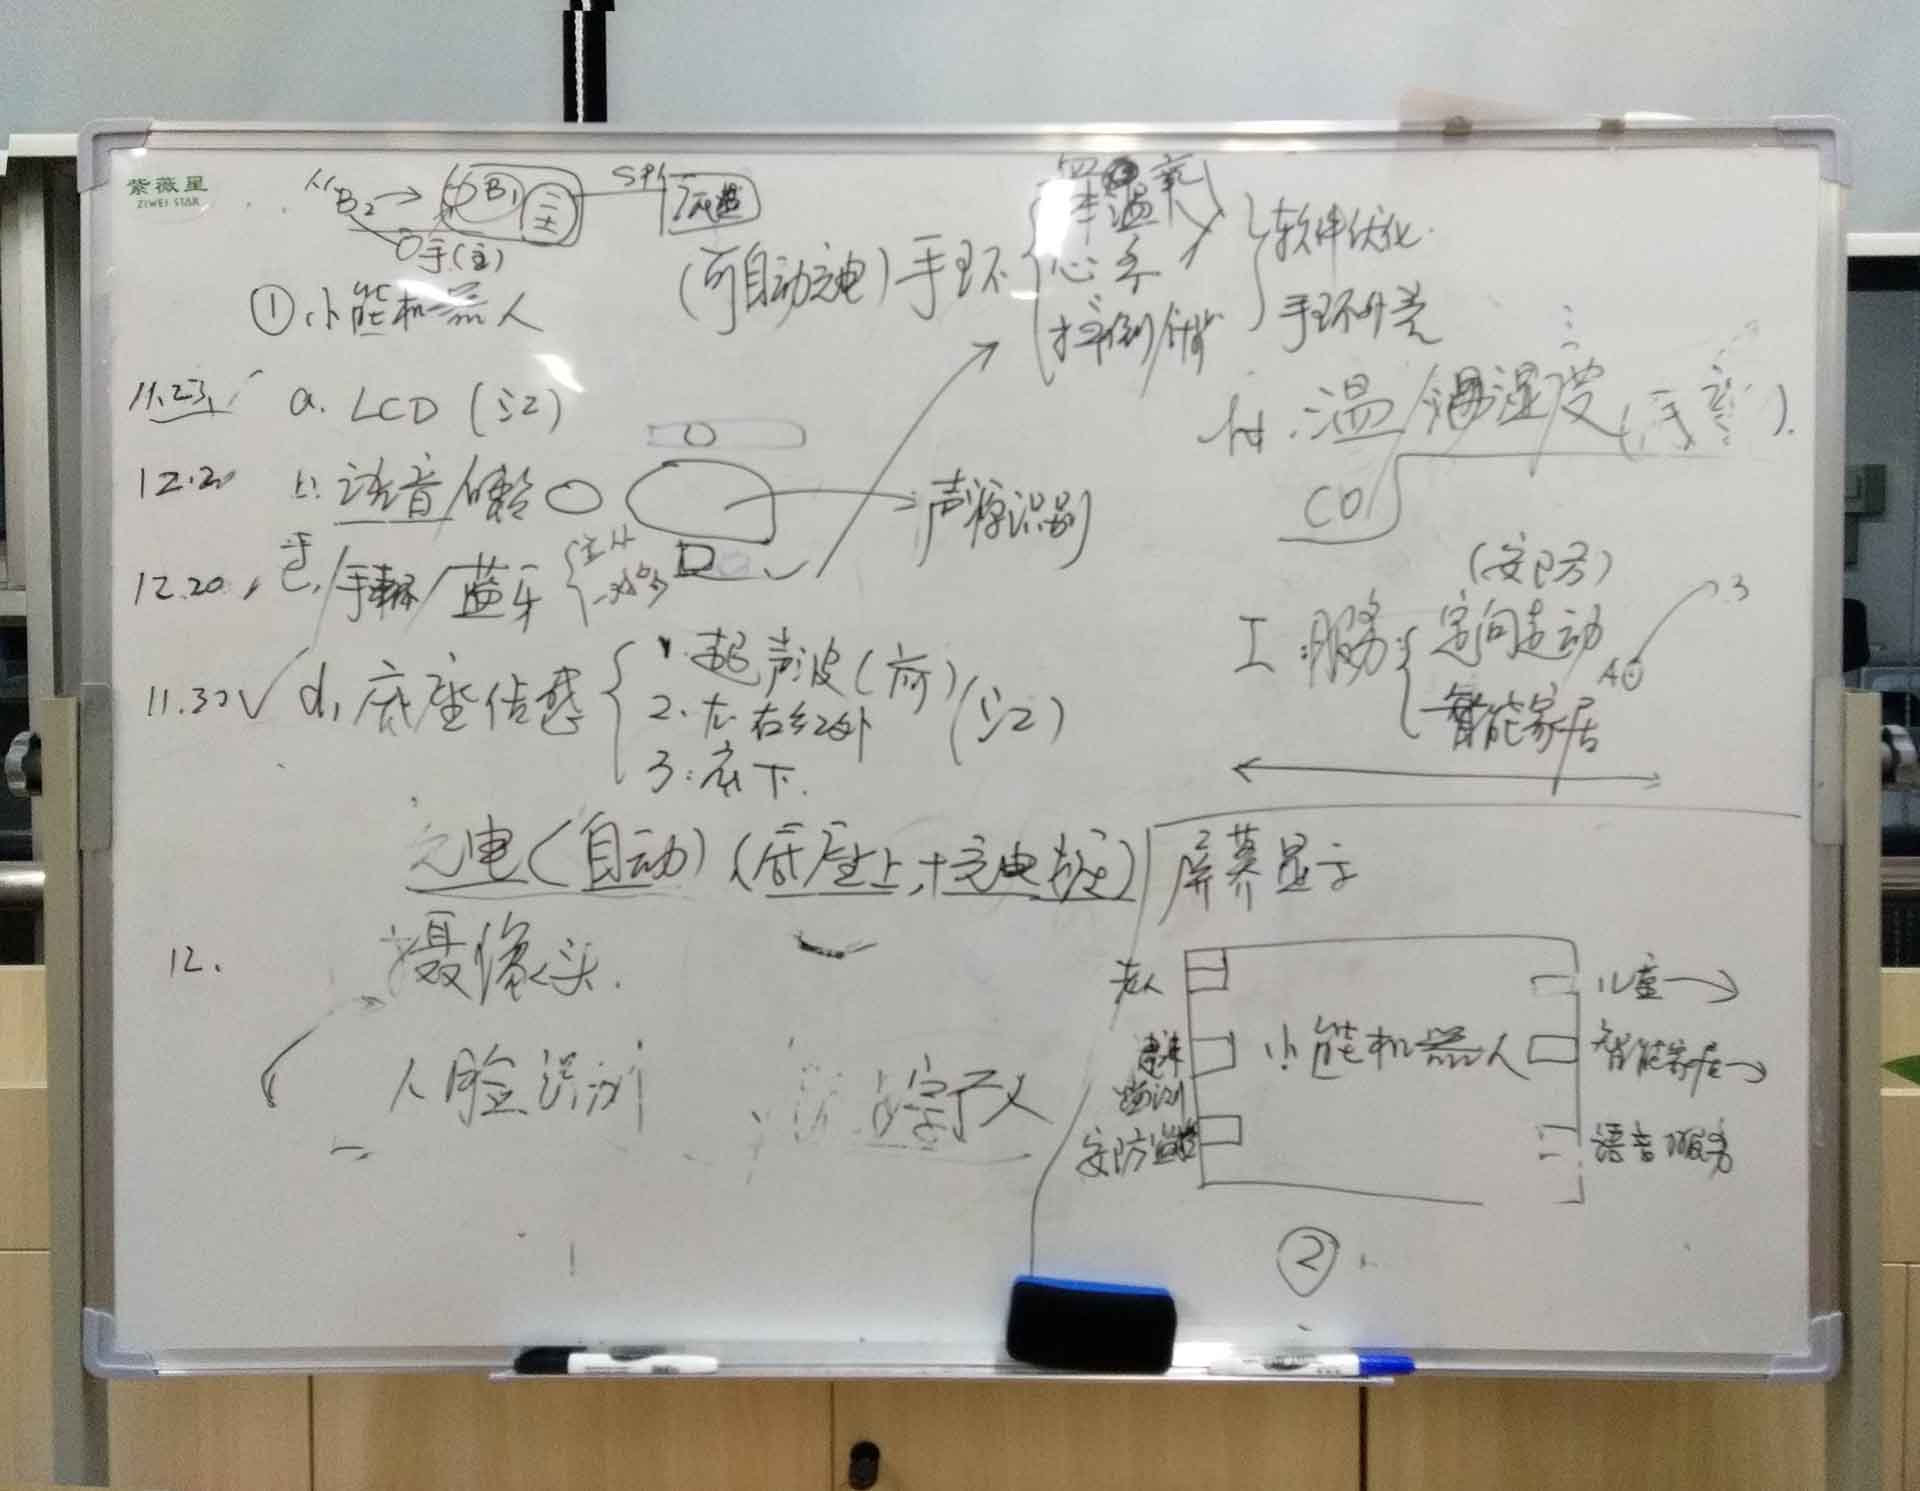 紫薇星
ZIWEI STAR
B2 → B1 主
SPI
手(主)
(可自动充电)手环
心率
软件优化
手环外壳
①小能机器人
11.23 a. LCD (江)
12.20 b. 语音/
声源识别
12.20 手环/蓝牙
主从
11.30√ d. 底座传感
1. 超声波(前)
2. 左.右红外
(江)
3. 底下.
充电(自动) (底座上,+充电桩)
12. 摄像头.
人脸识别
H. 温/湿度
CO
I. 服务:
(安防)
定向走动
智能家居
屏幕显示
老人
健康
监测
安防监控
小能机器人
儿童→
智能家居→
语音服务
②